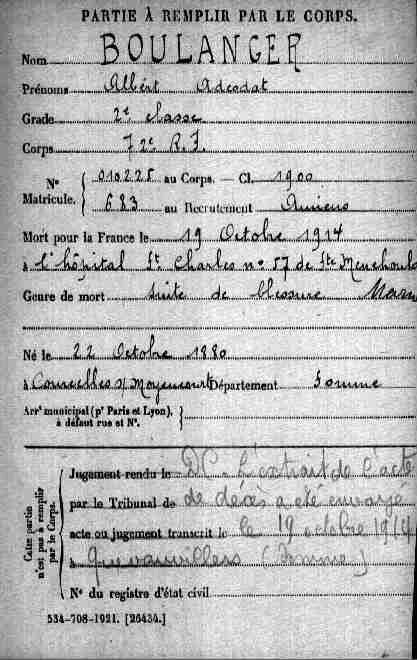 PARTIE À REMPLIR PAR LE CORPS.
Nom BOULANGER
Prénoms Albért Adeodat
Grade 2e classe
Corps 72e R.I.
Nos Matricule. { 010225 au Corps. — Cl. 1900
683 au Recrutement Amiens
Mort pour la France le 19 Octobre 1914
à l'hôpital St Charles no 57 de Ste Menehould
Genre de mort suite de blessure Marne
Né le 22 Octobre 1880
à Courcelles s/ Moyencourt Département Somme
Arrt municipal (pr Paris et Lyon), à défaut rue et No. }
Cette partie n'est pas à remplir par le Corps.
Jugement rendu le DC - L'extrait de l'acte
par le Tribunal de de décès a été envoyé
acte ou jugement transcrit le le 19 octobre 1914
à Quevauvillers (Somme)
No du registre d'état civil
534-708-1921. [26434.]